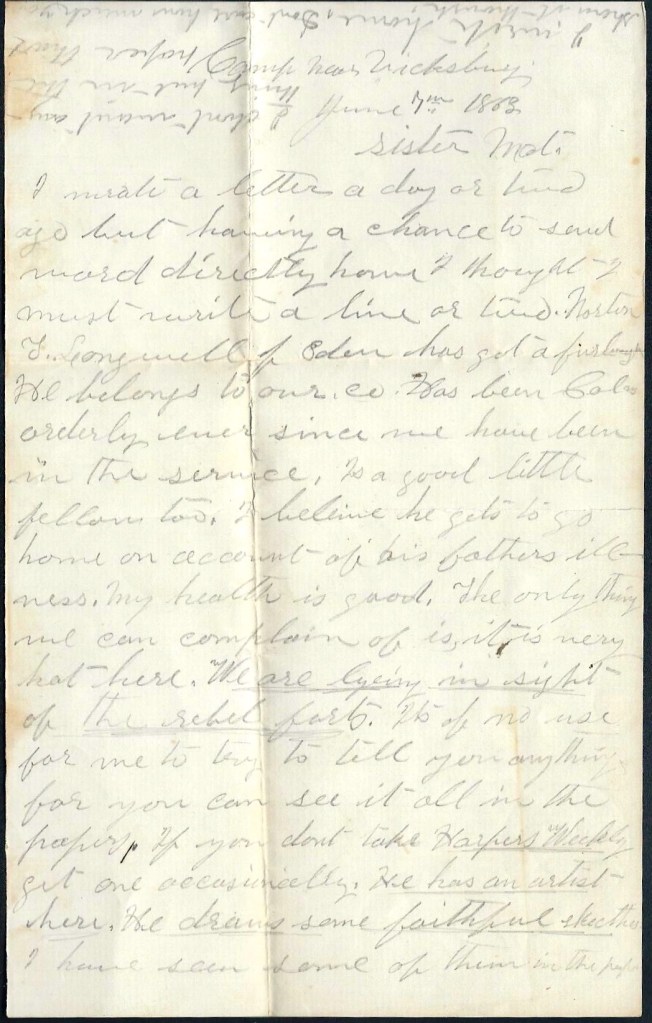 Camp near Vicksburg
June 7th 1863
Sister Mat.
I wrote a letter a day or two
ago but having a chance to send
word directly home I thought I
must write a line or two. Norton
T. Longwell of Eden has got a furlough
He belongs to our co. Has been Cols
orderly ever since we have been
in the service, Is a good little
fellow too. I believe he gets to go
home on account of his fathers ill-
ness. My health is good. The only thing
we can complain of is, it is very
hot here. We are lyeing in sight
of the rebel forts. Its of no use
for me to try to tell you anything
for you can see it all in the
papers. If you dont take Harpers Weekly
get one occasionally. He has an artist
here. He draws some faithful skethes
I have seen some of them in the paper
I dont want any
thing put in the
paper that
I write home. Dont